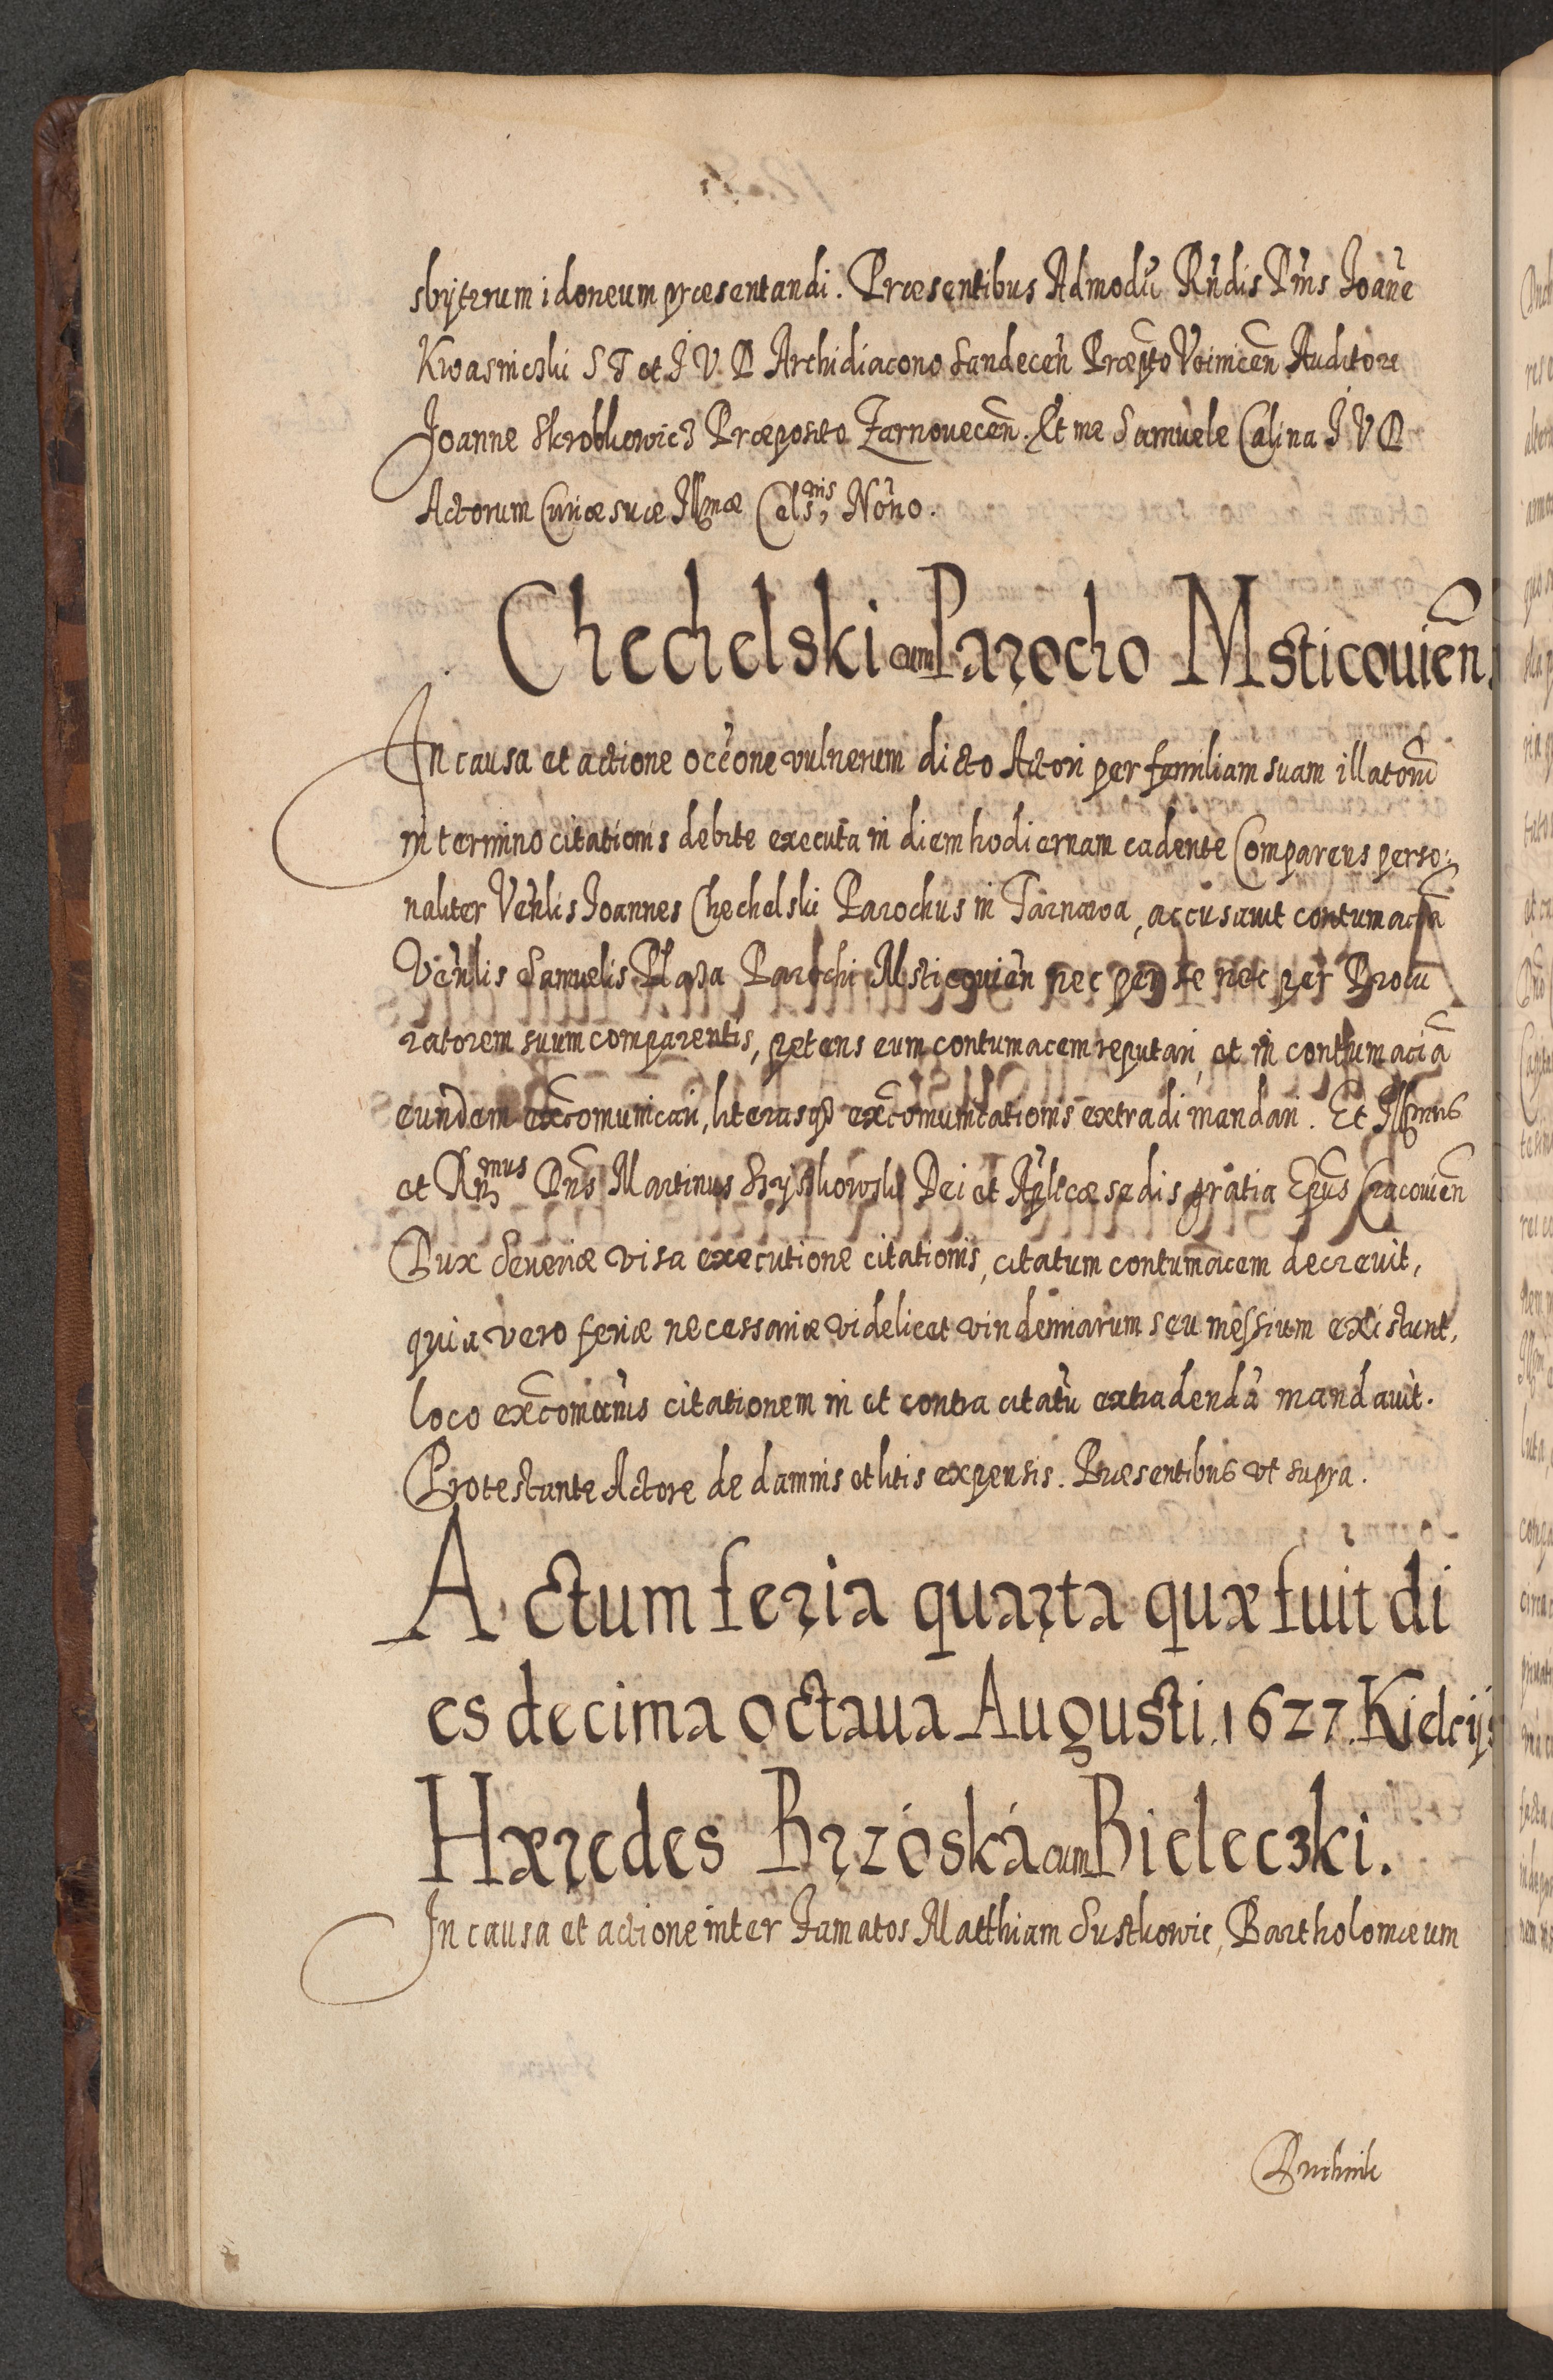 sbyterum idoneum præsentandi. Præsentibus Admodū Rndis Dnis Ioāne
Kwasniczki S T et I V D Archidiacono Sandecen Præpto Voinicen Auditore
Joanne Skrobkowicz Præposito Zarnovecen. Et me Samuele Calina I V D
Actorum Curiæ suæ Illmæ Cels.nis Nono.
Chechelski cum Parocho Msticouien.
In causa et actione occone vulnerum dicto Actori per familiam suam illatorū
in termino citationis debite executa in diem hodiernam cadente Comparens perso:
naliter Venlis Joannes Chechelski Parochus in Tarnawa, accusavit contumaciā
Venlis Samuelis Plaza Parochi Msticouien nec per se nec per Procu
ratorem suum comparentis, petens eum contumacem reputari, et in contumaciā
eundem excomunicari, literasq excomunicationis extradi mandari. Et Illmus
et Rn̄mus Dns Martinus Szyszkowski Dei et Aplicæ sedis gratia Epus Cracouien
Dux Seueriæ visa executione citationis, citatum contumacem decreuit,
quia vero feriæ necessariæ videlicet vindemiarum seu messium existunt,
loco excomonis citationem in et contra citatū extradendā mandauit.
Protestante Actore de damnis et litis expensis. Præsentibus vt supra.
Actum feria quarta quæ fuit di
es decima octaua Augusti. 1627. Kielcijs
Hæredes Brzóská cum Bieleczki.
In causa et actione inter Famatos Matthiam Sustkowic, Bartholomæum